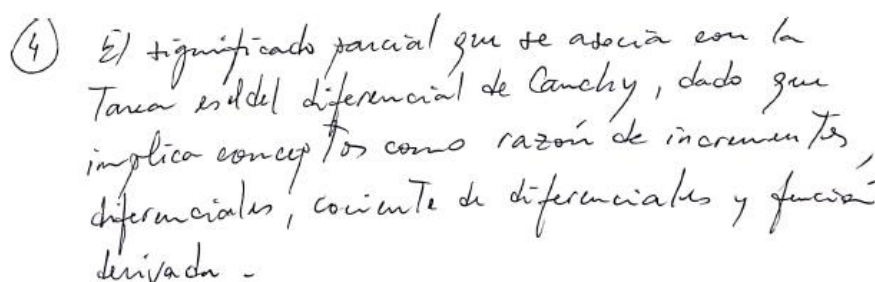 ④ El significado parcial que se asocia con la
Tarea es el del diferencial de Cauchy, dado que
implica conceptos como razón de incrementos,
diferenciales, cociente de diferenciales y función
derivada.